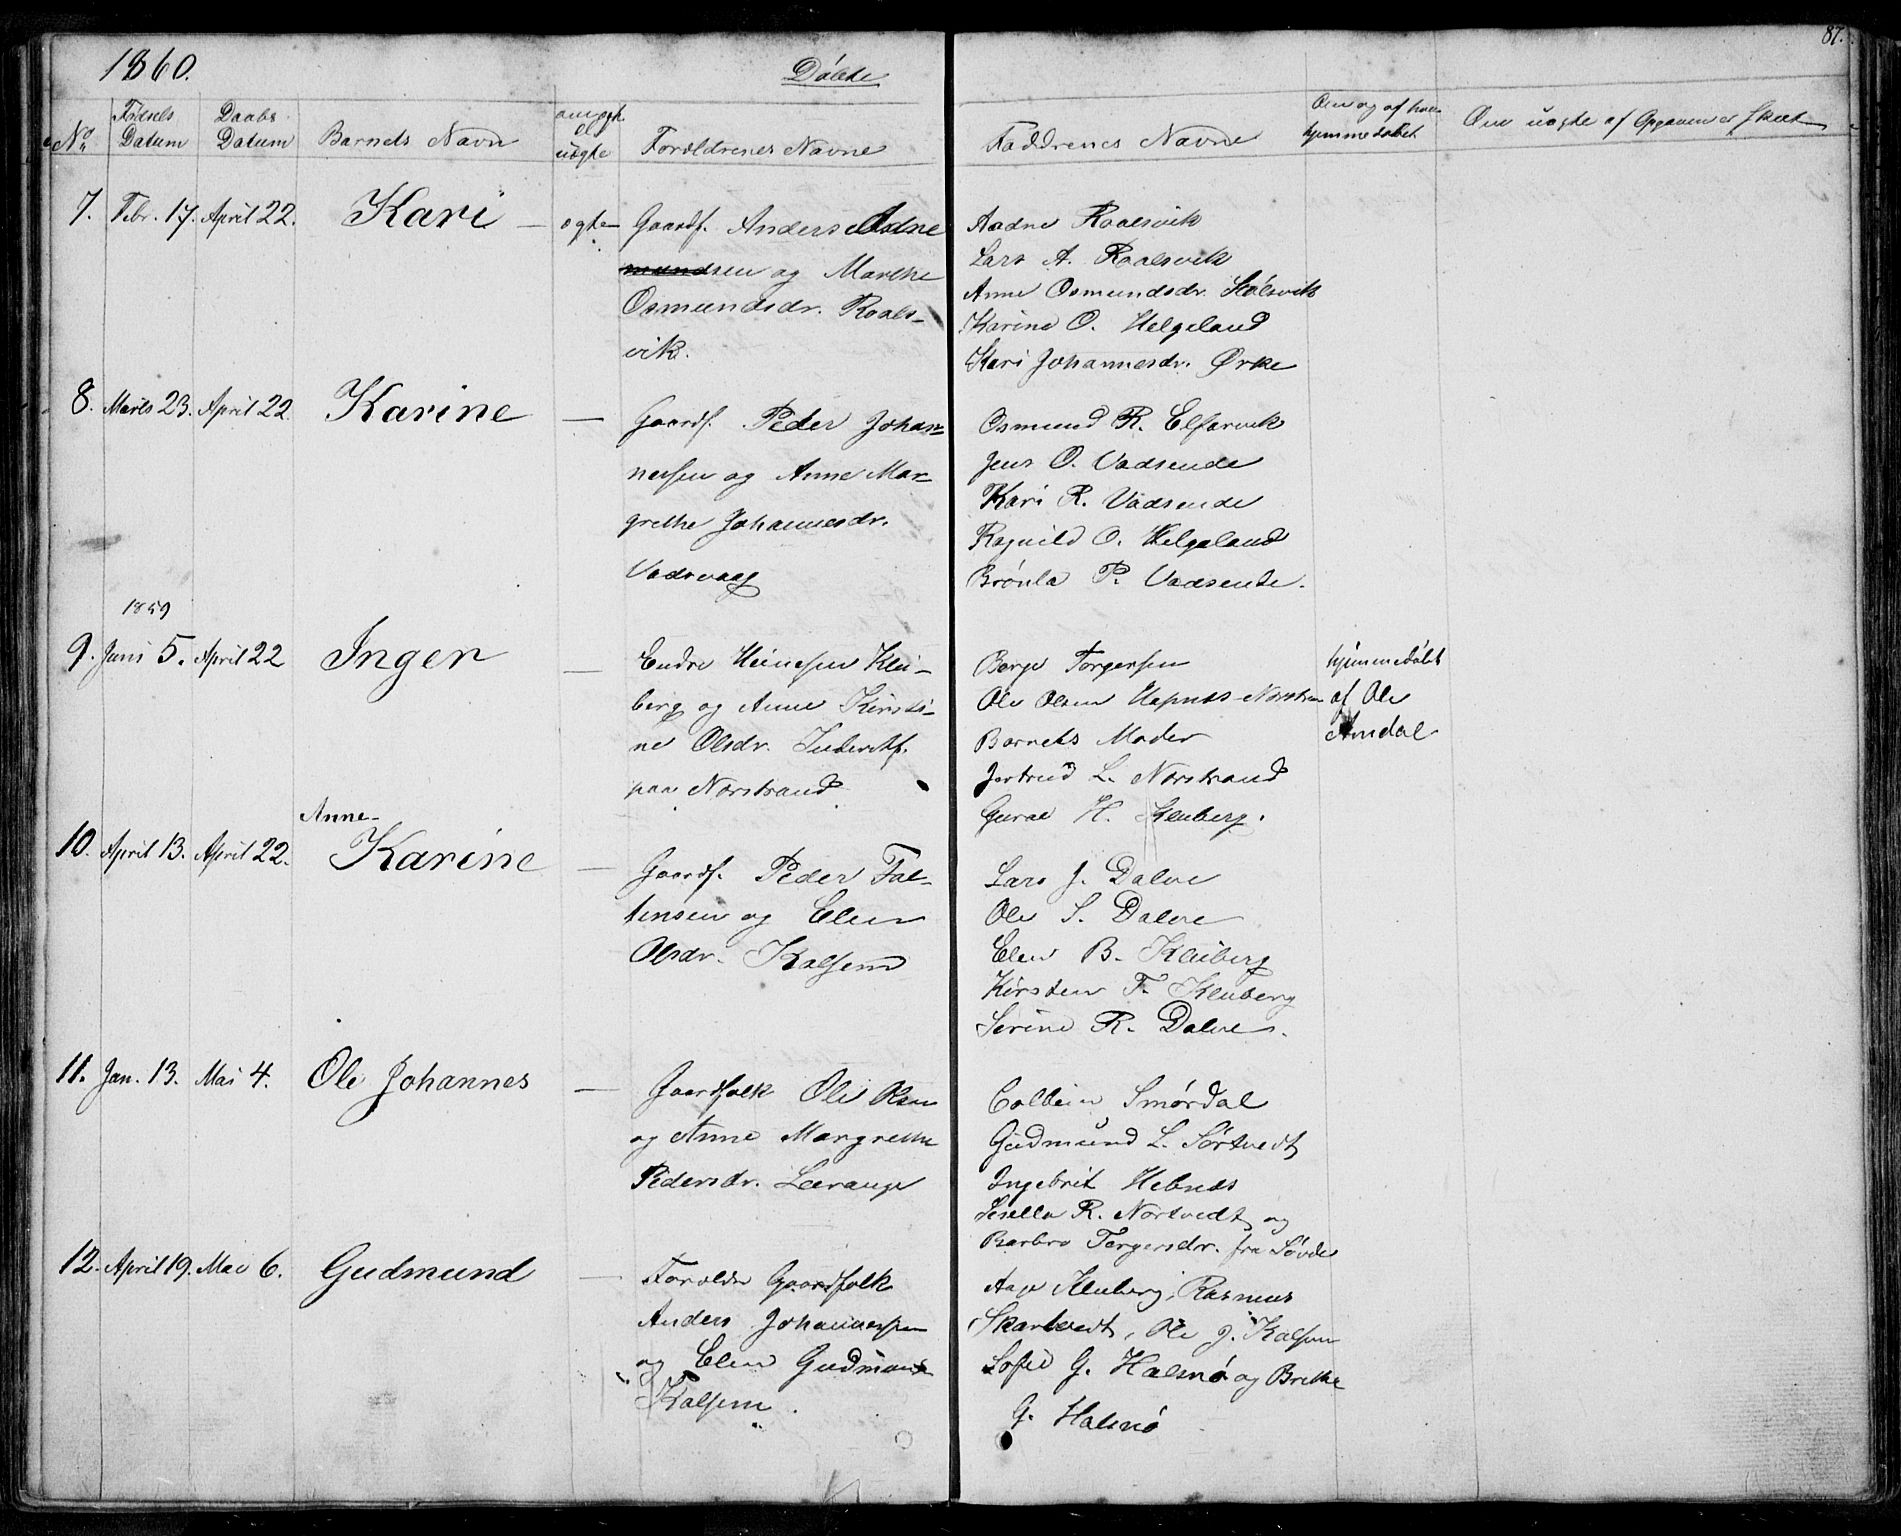 1860.
Døbte
87.
No
Fødsels Datum
Daabs Datum
Barnets Navn
om ægte el uægte
Forældrenes Navne
Faddrenes Navne
Om og af hvem hjemmedøbt
Om uægte af Opgaven er skeet
7. Febr. 17. April 22. Kari — ægte — Gaardf. Anders Adne
mundsen og Marthe
Osmundsdr. Roals-
vik.
Aadne Roalsvik
Lars A. Roalsvik
Anne Osmundsdr. Stølsvik
Karine O. Helgeland
Kari Johannesdr. Ørke
8. Marts 23. April 22 Karine — Gaardf. Peder Johan-
nessen og Anne Mar-
grethe Johannesdr.
Vadsvaag
Osmund R. Elfarvik
Jens O. Vadsende
Kari R. Vadsende
Ragnild O. Helgeland
Brønla P. Vadsende.
1859
9. Juni 5. April 22 Inger — Endre Heinesen Klei-
berg og Anne Kirsti-
ne Olsdr.
paa Norstrand
Børge Torgersen
Ole Olsen Norstran
Barnets Moder
Jertrud L. Norstrand
Guroe H. Kleiberg.
hjemmedøbt
af Ole
Amdal
Anne-
10. April 13. April 22. Karine — Gaardf. Peder Fal-
tinsen og Elen
Olsdr. Kalsem
Lars J. Dalve
Ole S. Dalve
Elen B. Kleiberg
Kirsten F. Kleiberg
Serine R. Dalve.
11. Jan. 13. Mai 4. Ole Johannes — Gaardfolk Ole
og Anne Margrethe
Pedersdr. Lerange
Colbein Smørdal
Gudmund L. Sørtvedt
Ingebrit Hebnes
Sesella R. Nortvedt og
Barbro Torgersdr. fra Søvde
12. April 19. Mai 6. Gudmund — Forældre Gaardfolk
Anders Johannessen
og Elen Gudmunds
Kalsem.
Aage Kleiberg, Rasmus
Skartvedt, Ole J. Kalsem
Sofie G. Halsnø og Brethe
G. Halsnø